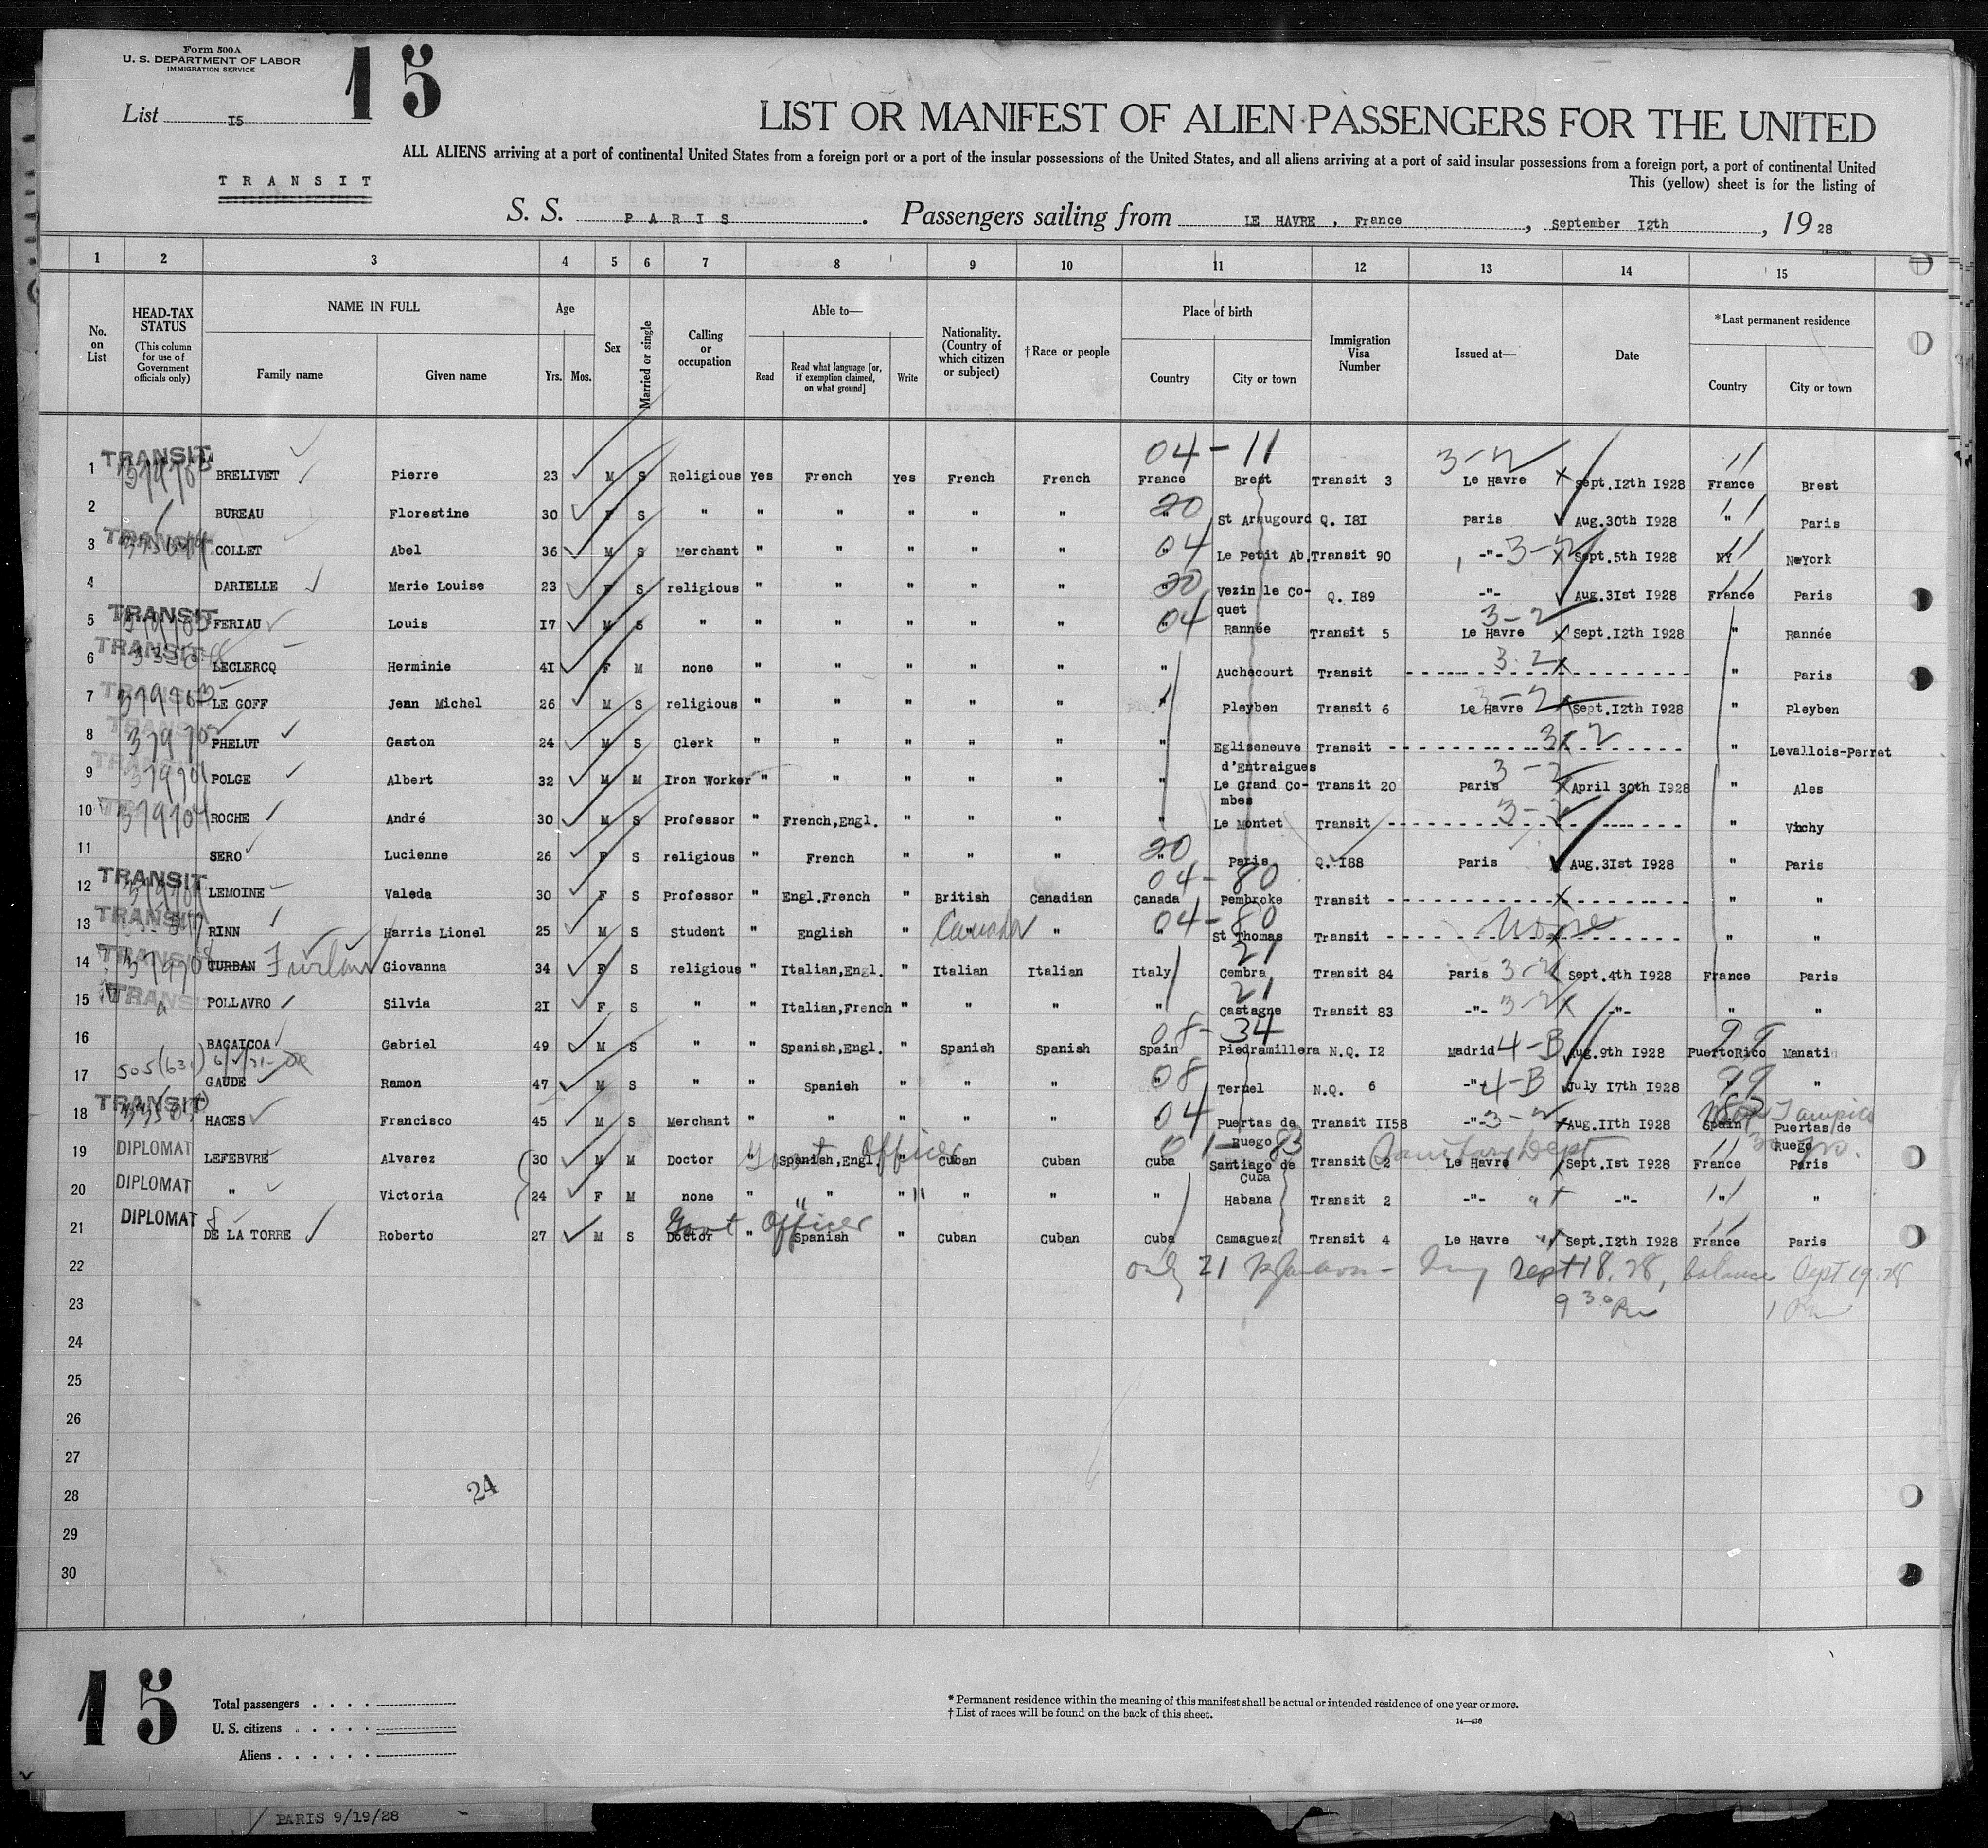 Form 500A
U. S. DEPARTMENT OF LABOR
IMMIGRATION SERVICE
15
List I5
LIST OR MANIFEST OF ALIEN PASSENGERS FOR THE UNITED
ALL ALIENS arriving at a port of continental United States from a foreign port or a port of the insular possessions of the United States, and all aliens arriving at a port of said insular possessions from a foreign port, a port of continental United
This (yellow) sheet is for the listing of
TRANSIT
S. S. PARIS. Passengers sailing from LE HAVRE, France, September I2th, 1928
1 2 3 4 5 6 7 8 9 10 11 12 13 14 15
No. on List
HEAD-TAX STATUS (This column for use of Government officials only)
NAME IN FULL Family name Given name
Age Yrs. Mos.
Sex
Married or single
Calling or occupation
Able to— Read Read what language [or, if exemption claimed, on what ground] Write
Nationality. (Country of which citizen or subject)
†Race or people
Place of birth Country City or town
Immigration Visa Number
Issued at—
Date
*Last permanent residence Country City or town
04-11 3-2 11
1 TRANSIT BRELIVET Pierre 23 M S Religious Yes French yes French French France Brest Transit 3 Le Havre Sept.I2th I928 France Brest
2 BUREAU Florestine 30 F S " " " " " " " 20 St Q. I8I Paris Aug.30th I928 " 11 Paris
3 TRANSIT COLLET Abel 36 M S Merchant " " " " " " 04 Le Petit Ab. Transit 90 -"- 3-2 Sept.5th I928 NY 11 NewYork
4 DARIELLE Marie Louise 23 F S religious " " " " " " 20 Vezin le Coquet Q. I89 -"- Aug.3Ist I928 France 11 Paris
5 TRANSIT FERIAU Louis I7 M S " " " " " " " 04 Rannée Transit 5 Le Havre 3-2 Sept.I2th I928 " Rannée
6 TRANSIT LECLERCQ Herminie 4I F M none " " " " " " Auchecourt Transit 3-2 " Paris
7 TRANSIT 379703 LE GOFF Jean Michel 26 M S religious " " " " " " Pleyben Transit 6 Le Havre 3-2 Sept.I2th I928 " Pleyben
8 TRANSIT PHELUT Gaston 24 M S Clerk " " " " " " Egliseneuve d'Entraigues Transit 3-2 " Levallois-Perret
9 TRANSIT POLGE Albert 32 M M Iron Worker " " " " " " Le Grand Combes Transit 20 Paris 3-2 April 30th I928 " Ales
10 379704 ROCHE André 30 M S Professor " French,Engl. " " " " Le Montet Transit 3-2 " Vichy
11 SERO Lucienne 26 F S religious " French " " " " 20 Paris Q. I88 Paris Aug.3Ist I928 " Paris
04-80
12 TRANSIT LEMOINE Valeda 30 F S Professor " Engl.French " British Canadian Canada Pembroke Transit " "
13 TRANSIT RINN Harris Lionel 25 M S Student " English " Canada " " 04-80 St Thomas Transit None " "
14 TRANSIT TURBAN Furlan Giovanna 34 F S religious " Italian,Engl. " Italian Italian Italy 21 Cembra Transit 84 Paris 3-2 Sept.4th I928 France Paris
15 TRANSIT POLLAVRO Silvia 2I F S " " Italian,French " " " " 21 Castagne Transit 83 -"- 3-2 -"- " "
16 BACAICOA Gabriel 49 M S " " Spanish,Engl. " Spanish Spanish Spain 08-34 Piedramillera N.Q. I2 Madrid 4-B Aug.9th I928 PuertoRico 99 Manati
17 505(631) GAUDE Ramon 47 M S " " Spanish " " " " 08 Teruel N.Q. 6 -"- 4-B July I7th I928 99 "
18 TRANSIT HACES Francisco 45 M S Merchant " " " " " 04 Puertas de Ruego Transit II58 -"- 3-2 Aug.IIth I928 Spain Tampico Puertas de Ruego
19 DIPLOMAT LEFEBVRE Alvarez 30 M M Doctor " Govt Officer Spanish,Engl. " Cuban Cuban Cuba 01-83 Santiago de Cuba Transit 2 Sanitary Dept Le Havre Sept.Ist I928 France 11 Paris
20 DIPLOMAT " Victoria 24 F M none " " " " " " Habana Transit 2 -"- -"- " 11 "
21 DIPLOMAT DE LA TORRE Roberto 27 M S Doctor Govt Officer " Spanish " Cuban Cuban Cuba Camaguez Transit 4 Le Havre Sept.I2th I928 France 11 Paris
22 only 21 Sept 18.28, balance Sept 19.28
23 9 30 Pm 1 Pm
24
25
26
27
28 24
29
30
15
Total passengers
U. S. citizens
Aliens
* Permanent residence within the meaning of this manifest shall be actual or intended residence of one year or more.
† List of races will be found on the back of this sheet.
PARIS 9/19/28